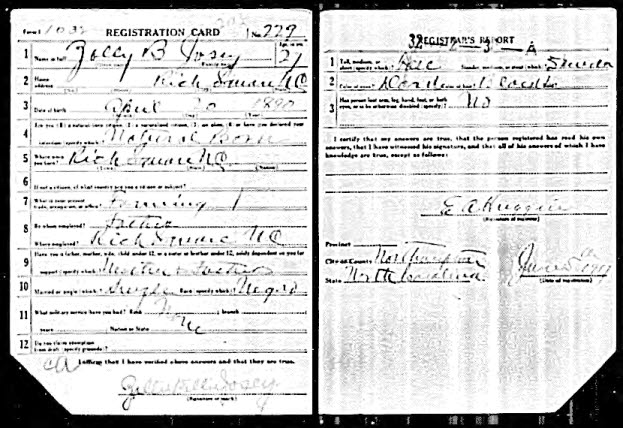 Form 1 1032 REGISTRATION CARD No. 229
1 Name in full Zolly B Josey Age, in yrs. 27
(Given name) (Family name)
2 Home address Rich Square NC
(No.) (Street) (City) (State)
3 Date of birth April 20 1890
(Month) (Day) (Year)
4 Are you (1) a natural-born citizen, (2) a naturalized citizen, (3) an alien, (4) or have you declared your
intention (specify which)? Natural Born
5 Where were you born? Rich Square NC
(Town) (State) (Nation)
6 If not a citizen, of what country are you a citizen or subject?
7 What is your present trade, occupation, or office? Farming 1
8 By whom employed? Father
Where employed? Rich Square NC
9 Have you a father, mother, wife, child under 12, or a sister or brother under 12, solely dependent on you for
support (specify which)? Mother & Father
10 Married or single (which)? Single Race (specify which)? Negro
11 What military service have you had? Rank None ; branch
years ; Nation or State
12 Do you claim exemption from draft (specify grounds)?
I affirm that I have verified above answers and that they are true.
Josey
(Signature or mark)
32-2-3-A
REGISTRAR'S REPORT
1 Tall, medium, or short (specify which)? Slender, medium, or stout (which)? Slender
2 Color of eyes? Color of hair? Black
3 Has person lost arm, leg, hand, foot, or both eyes, or is he otherwise disabled (specify)? No
I certify that my answers are true, that the person registered has read his own
answers, that I have witnessed his signature, and that all of his answers of which I have
knowledge are true, except as follows:
(Signature of registrar)
Precinct
City or County Northampton
State North Carolina
(Date of registration)